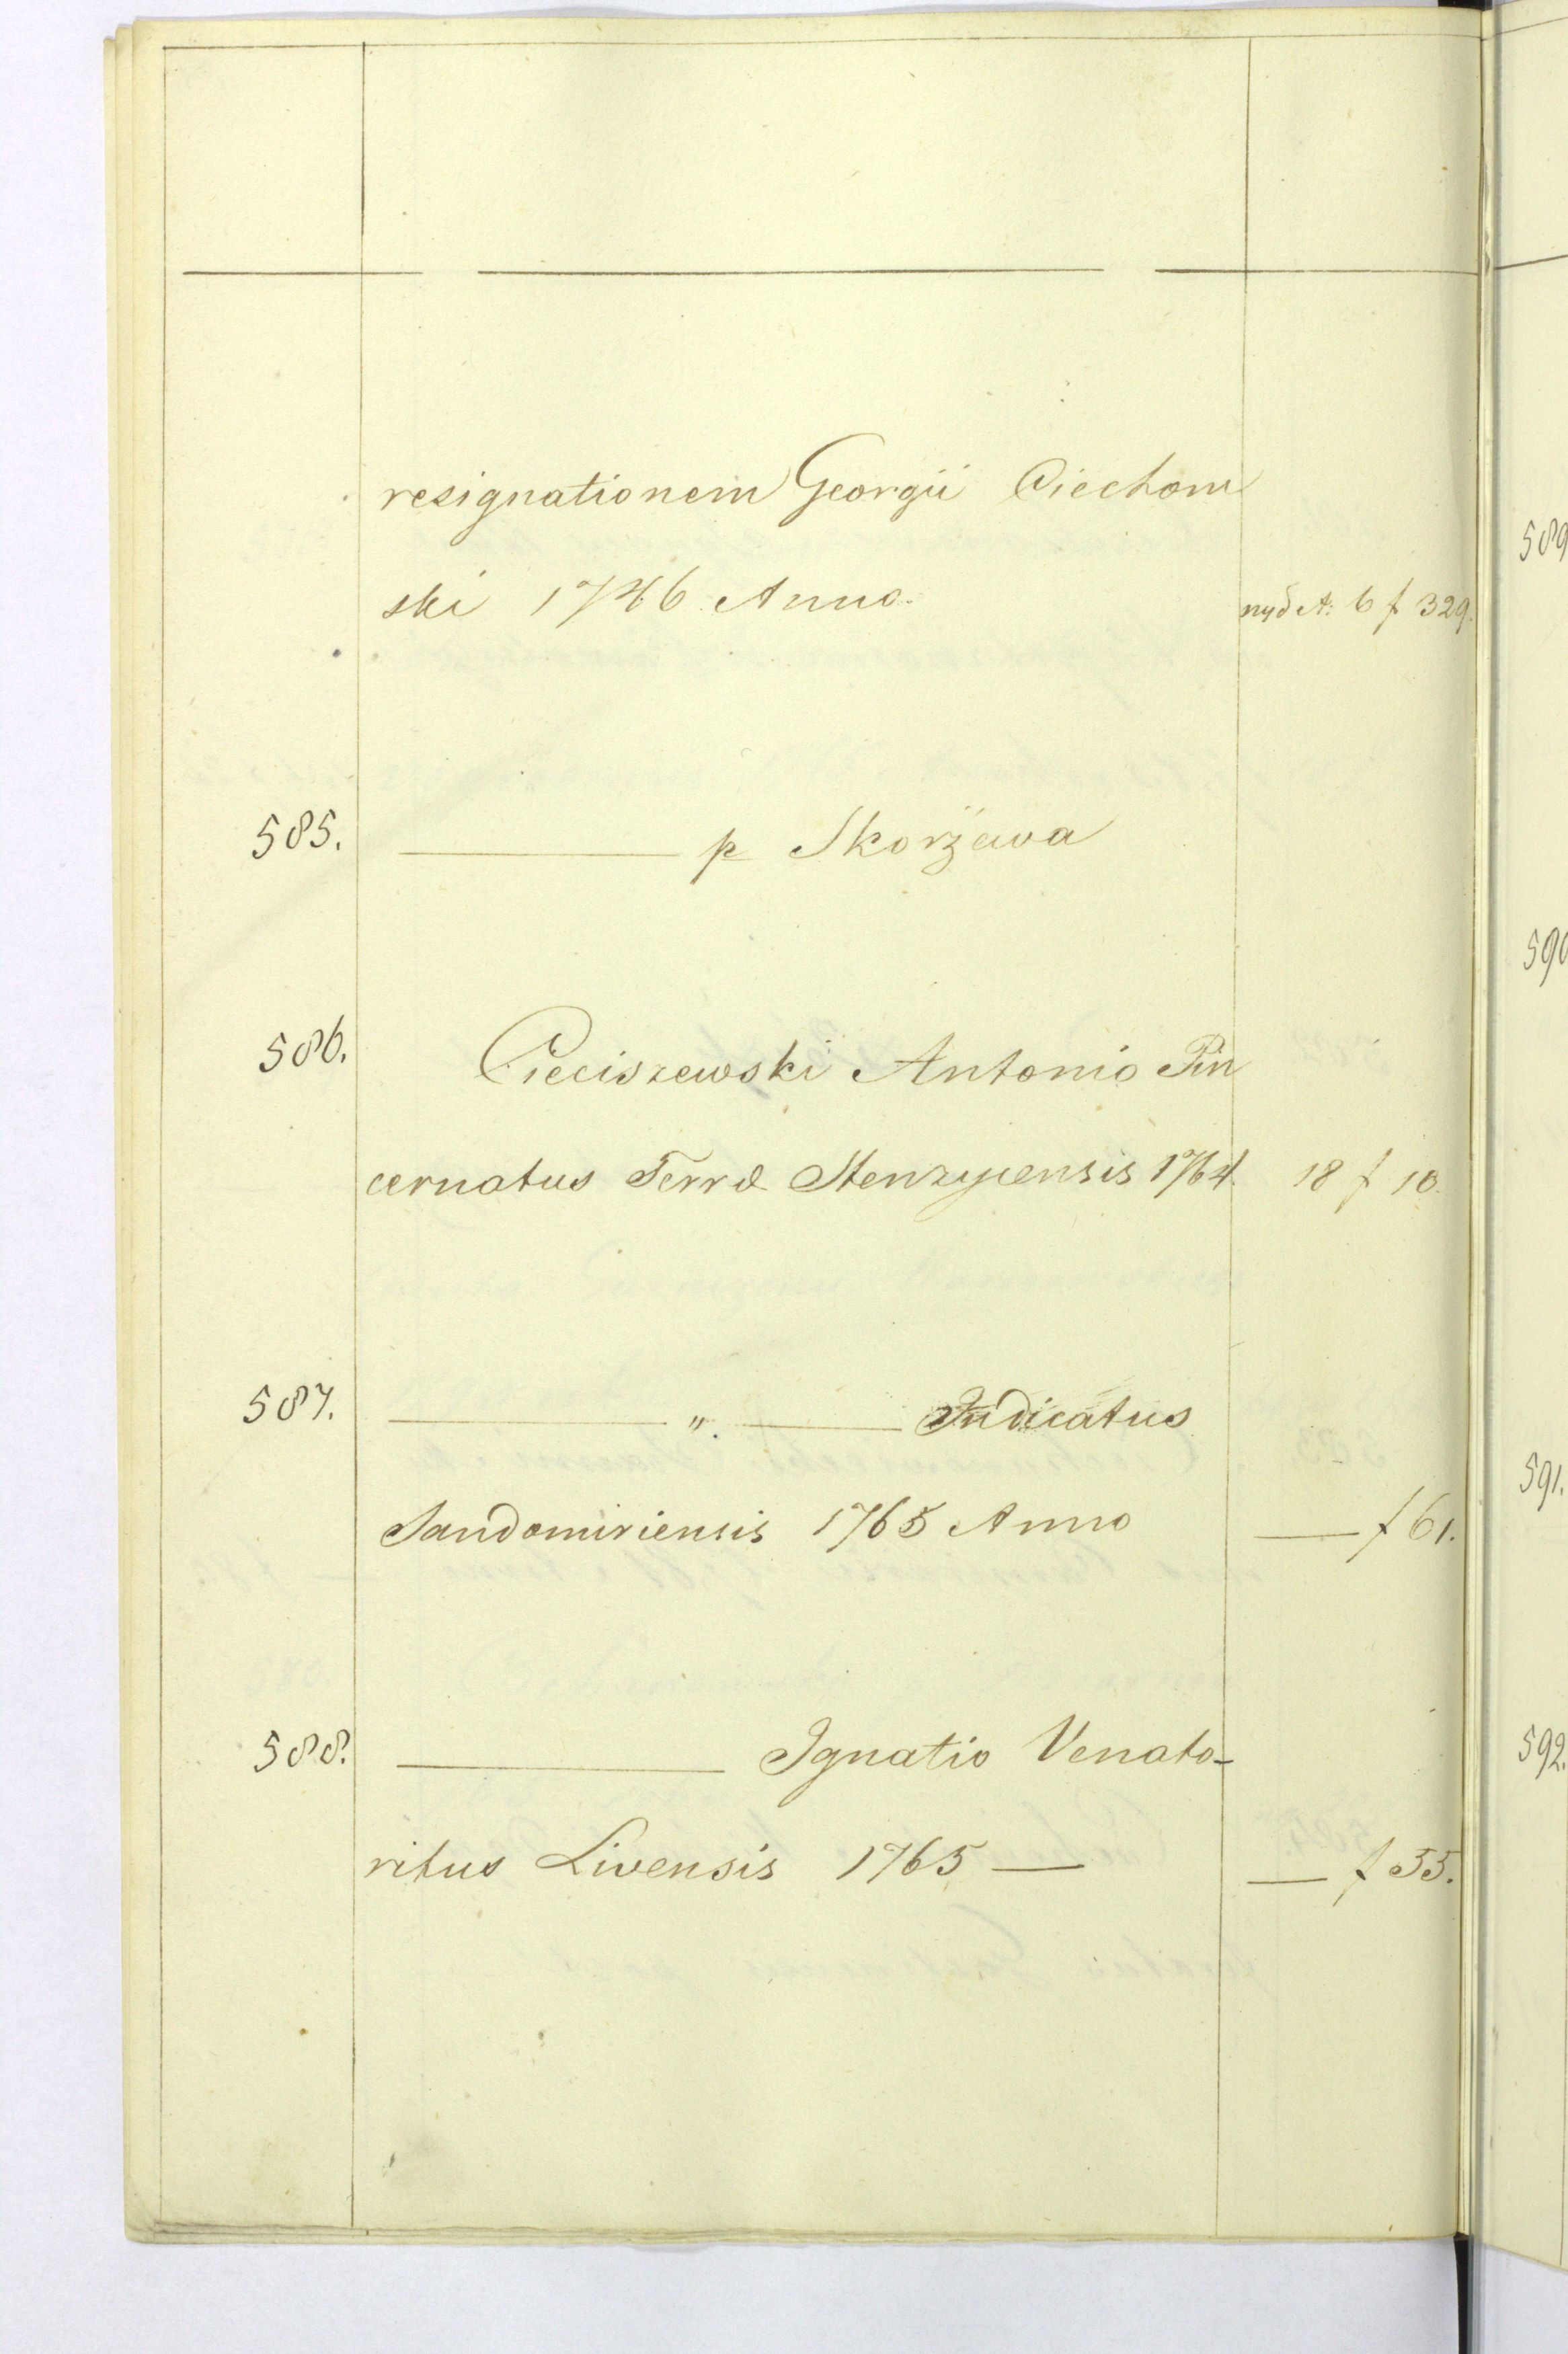 resignationem Georgii Ciechom
ski 1746 Anno. A: 6 f 329.
585. p Skorżewa
586. Cieciszewski Antonio Pin
cernatus Terræ Stenzycensis 1764. 18 f 10.
587. ". Judicatus
Sandomiriensis 1765 Anno f 61.
588. Ignatio Venato-
ritus Livensis 1765 — — f 55.
589
590
591.
592.